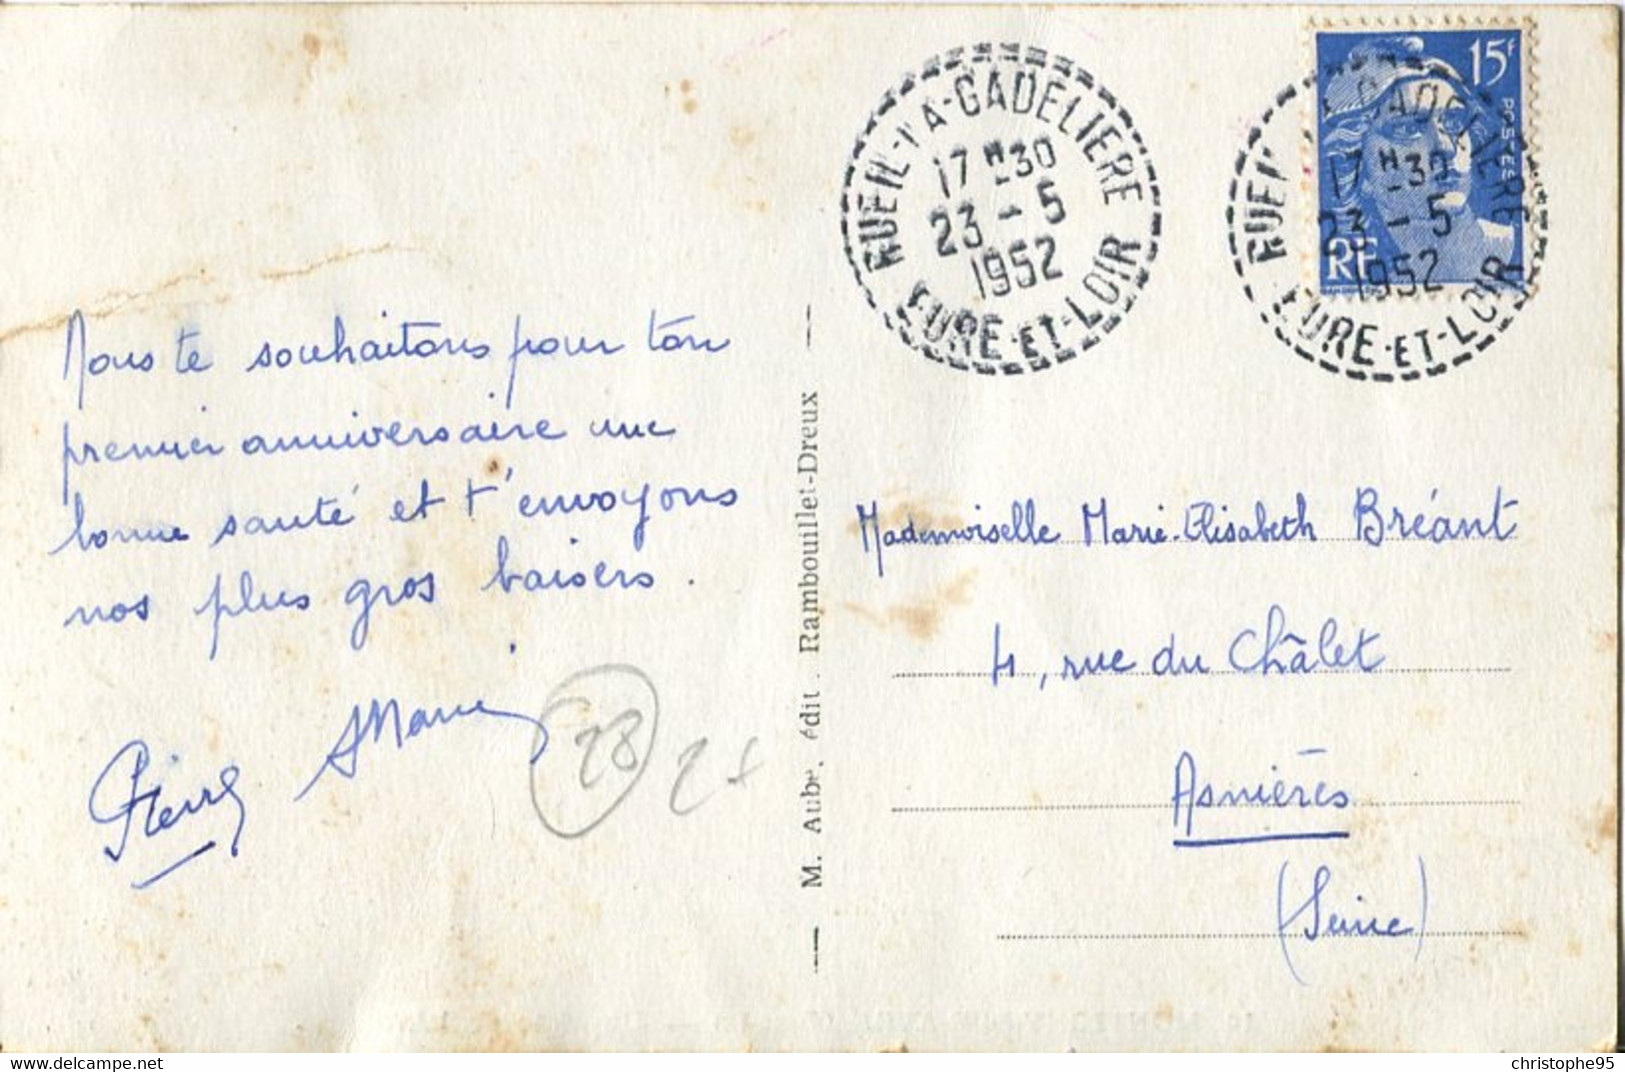 Nous te souhaitons pour ton
premier anniversaire une
bonne santé et t'envoyons
nos plus gros baisers.
Pierre Marie
28
M. Aubé, édit. Rambouillet-Dreux
RUEIL-LA-GADELIERE
17 H 30
23 - 5
1952
EURE-ET-LOIR
15F
POSTES
RF
RUEIL LA GADELIERE
17 H 30
23 - 5
1952
EURE-ET-LOIR
Mademoiselle Marie-Elisabeth Bréant
4, rue du Châlet
Asnières
(Seine)
www.delcampe.net
christophe95